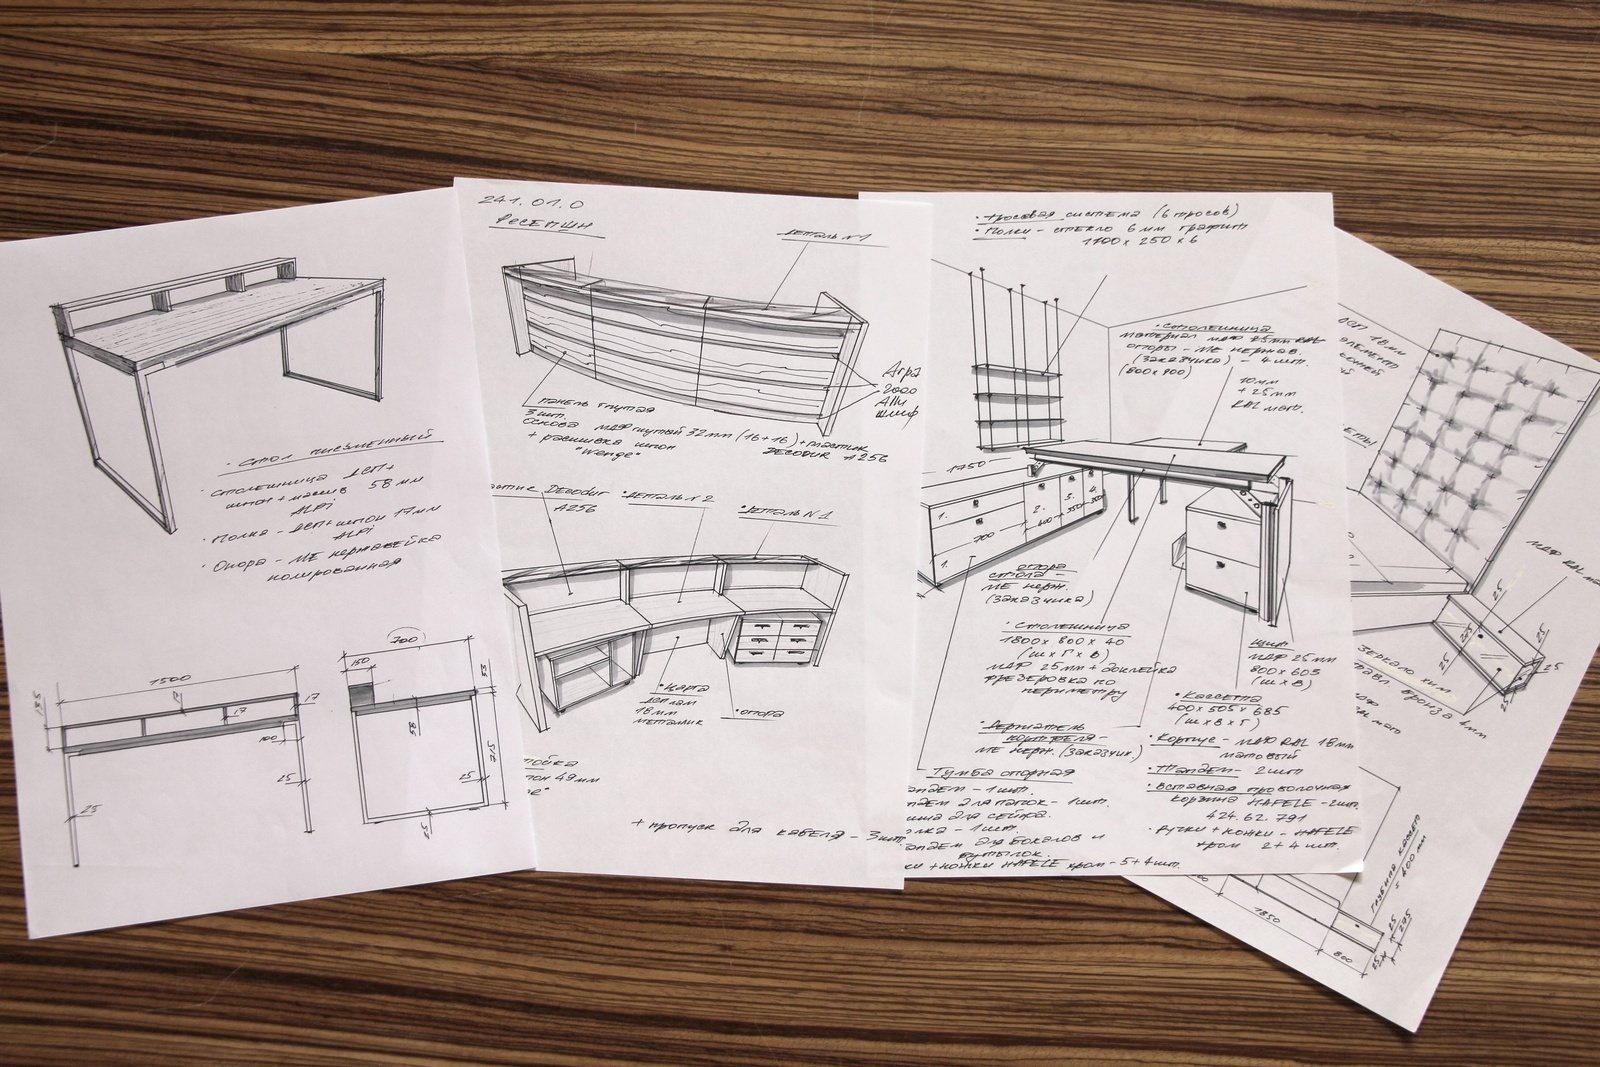 • Стол письменный
• Столешница ДСП+
шпон+массив 58 мм
ALPi
• Полка – ДСП+шпон 17мм
ALPi
• Опора – МЕ нержавейка
полированная
1500
135
17
17
100
25
25
700
150
53
58
715
25
25
241.01.0
Ресепшн
деталь №1
Агра
2000
Alu
шлиф
панель гнутая
3 шт.
основа МДФ гнутый 32мм (16+16)+пластик
+ расшивка шпон DECODUR A256
"Wenge"
Decodur
A256
• деталь №2
• деталь №1
• Царга
ДСП лам
18мм
металлик
• опора
49мм
+ пропуск для кабеля – 3 шт.
• Тросовая система (6 тросов)
• Полки – стекло 6мм графит
1100 x 250 x 6
• Столешница
материал МДФ 25мм RAL
опоры – МЕ нержав.
(заказчика) – 4шт.
(800x900)
10мм
+ 25мм
RAL мат.
1750
1.
2.
3.
4.
700
1.
опора
стола –
МЕ нерж.
(заказчика)
• Столешница
1800 x 800 x 40
(ш x г x в)
МДФ 25мм + доклейка
фрезеровка по
периметру
• Держатель
МЕ нерж. (заказчик.)
Тумба опорная
– 1шт.
для папок – 1шт.
для сейфа.
– 1шт.
для бокалов и
бутылок.
+ножки HAFELE хром – 5+4шт.
МДФ 25мм
800 x 603
(ш x в)
• Кассета
400 x 505 x 685
(ш x в x г)
• Корпус – МДФ RAL 18мм
матовый
• Тандем – 2шт
• вставная проволочная
корзина HAFELE – 2шт.
424.62.791
• ручки + ножки – HAFELE
хром 2+4шт.
ДСП 18мм
МДФ RAL
25
25
25
25
25
зеркало хим.
травл. бронза 4мм
глубина
= 400 мм
1850
800
25
25
295